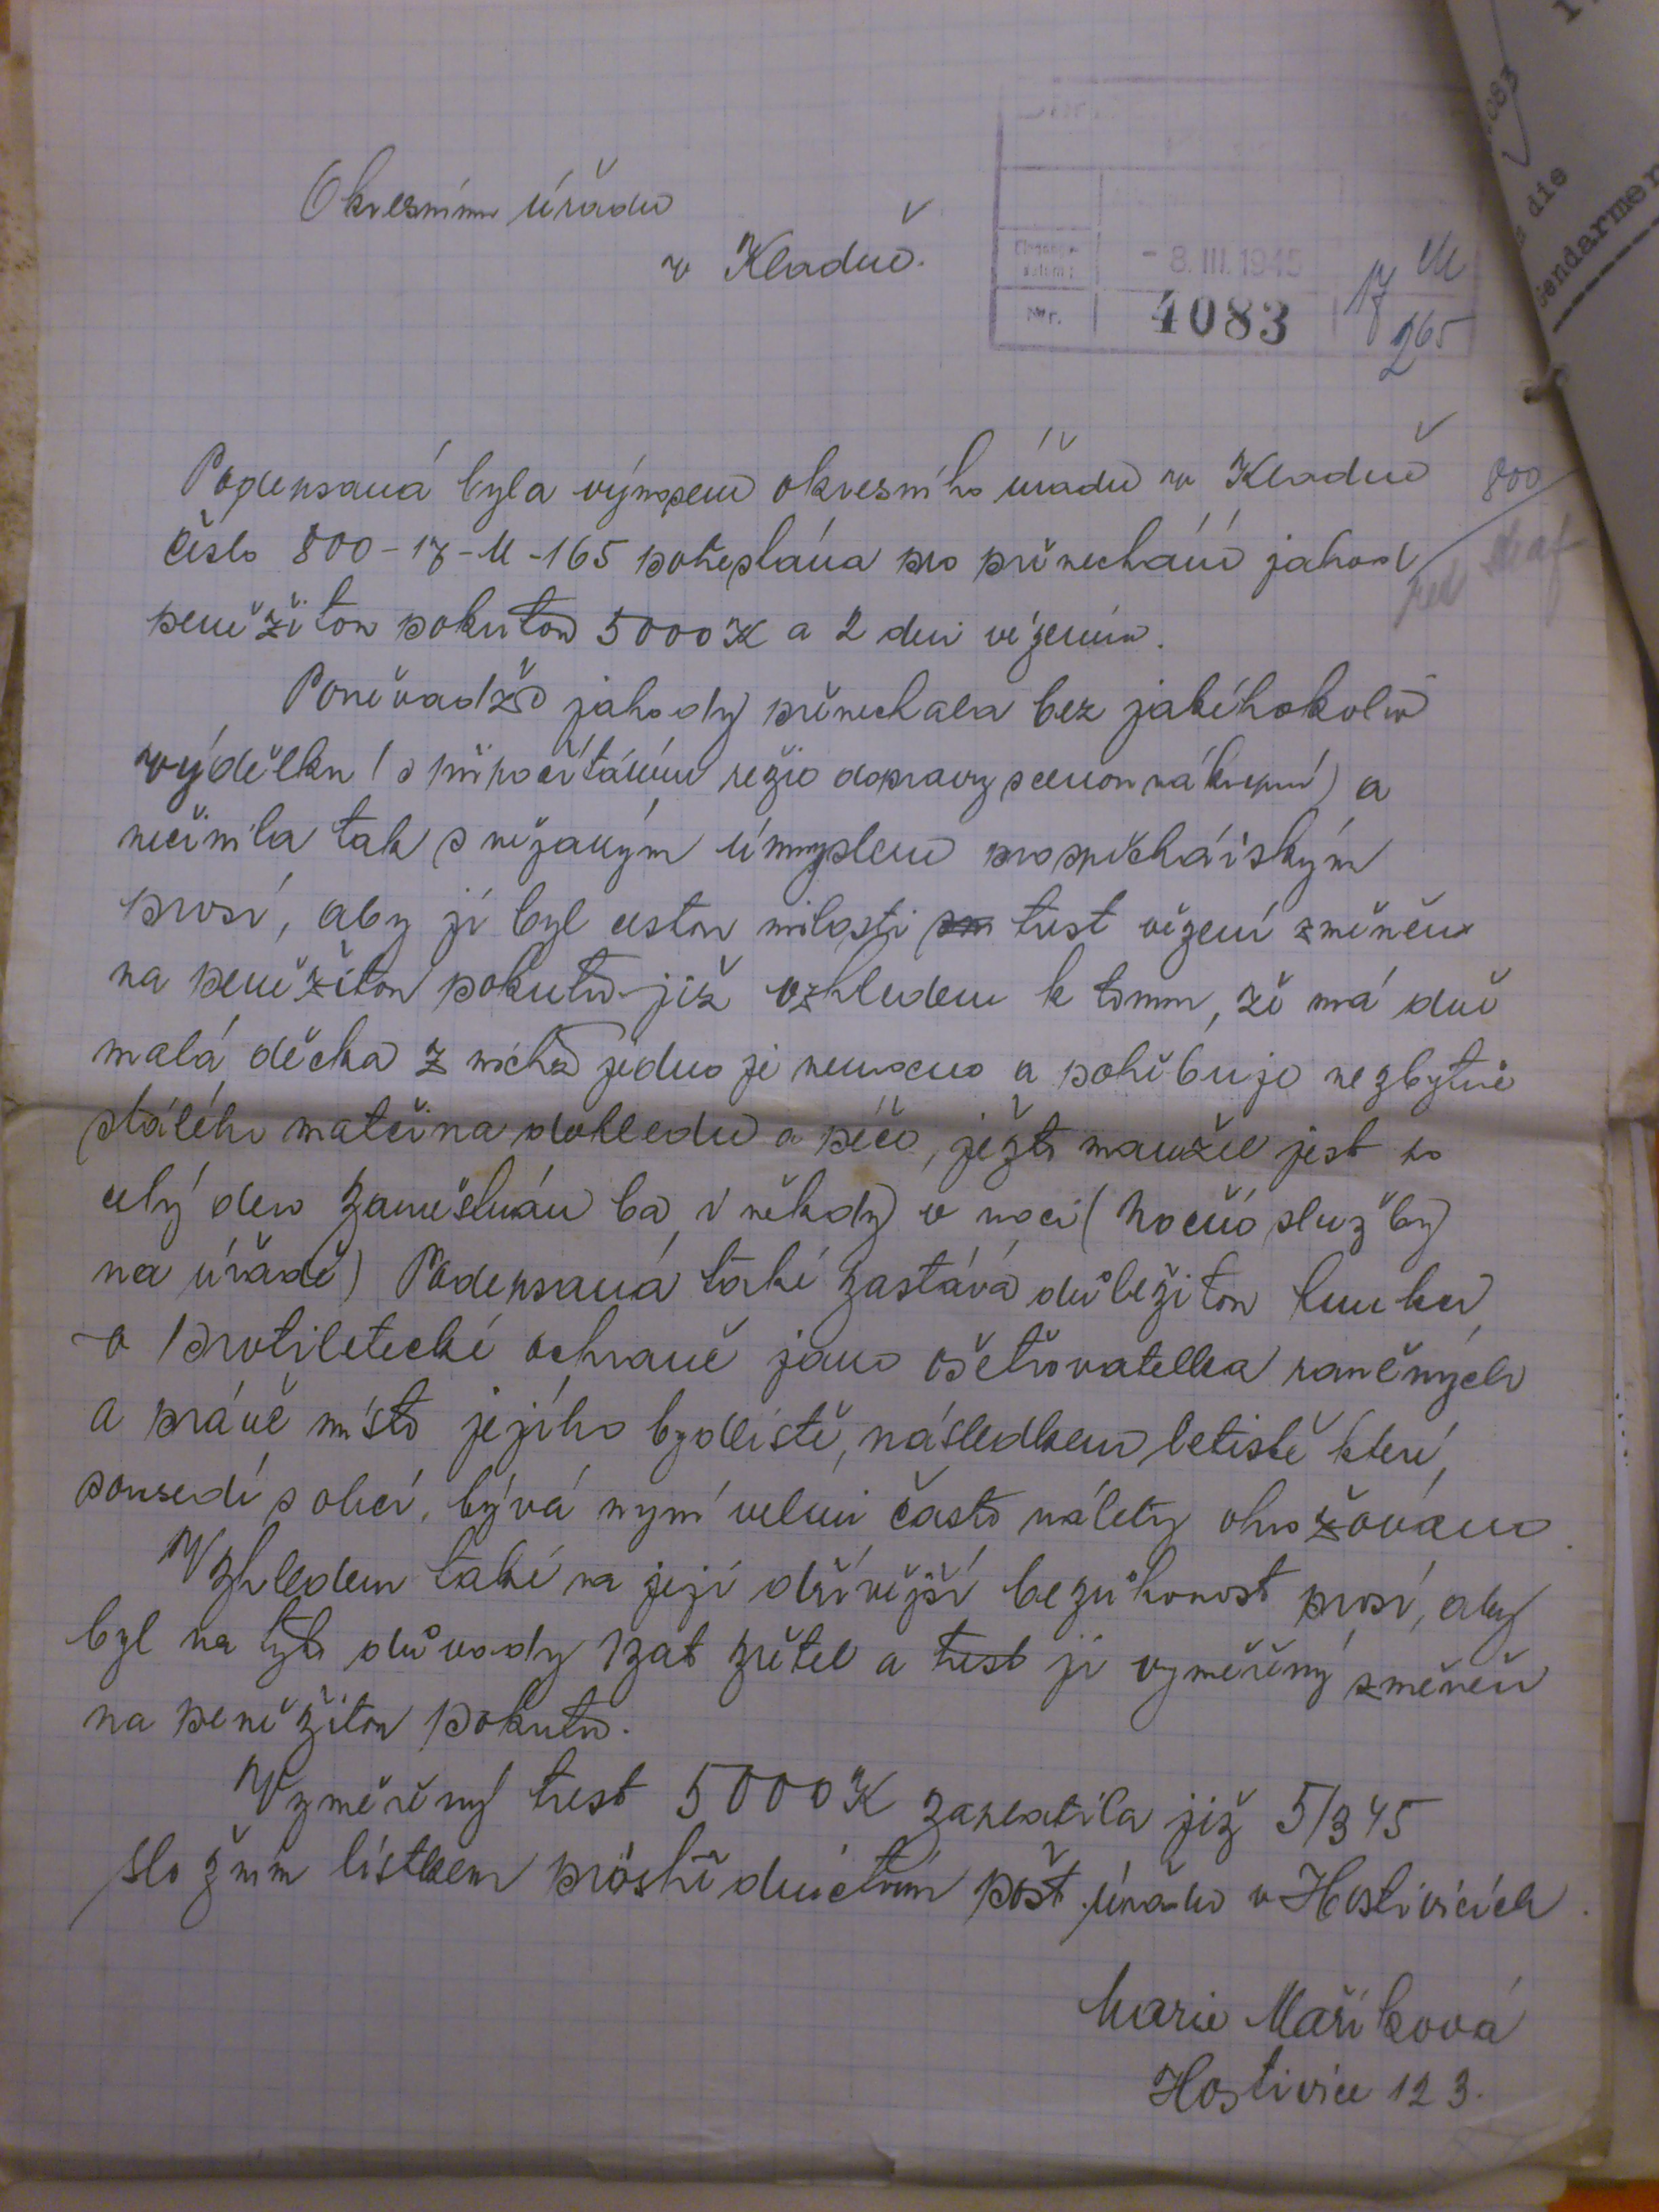 Okresnímu úřadu
v Kladně.
- 8. III. 1945
Nr.
4083
17 M
265
Podepsaná byla výnosem okresního úřadu v Kladně
číslo 800-17-M-165 potrestána pro přenechání jahod
800
peněžitou pokutou 5000 K a 2 dni vězením.
Poněvadž jahody přenechala bez jakéhokoliv
výdělku (s připočítáním režie dopravy s cenou nákupní) a
nečinila tak s nějakým úmyslem prospěchářským
prosí, aby jí byl cestou milosti trest vězení změněn
na peněžitou pokutu již vzhledem k tomu, že má dvě
malá děcka z nichž jedno je nemocno a potřebuje nezbytně
stálého matčina dohledu a péče, ježto manžel jest po
celý den zaměstnán ba i někdy v noci (noční služby
na úřadě) Podepsaná také zastává důležitou funkci
v protiletecké ochraně jako ošetřovatelka raněných
a právě místo jejího bydliště, následkem letiště které
sousedí s obcí, bývá nyní velmi často nálety ohrožováno.
Vzhledem také na její dřívější bezúhonost prosí, aby
byl na tyto důvody vzat zřetel a trest jí vyměřený změněn
na peněžitou pokutu.
Vyměřený trest 5000 K zaplatila již 5/3 45
složním lístkem prostřednictvím pošt. úřadu v Hostivicích.
Marie Maříková
Hostivice 123.
die
Gendarmer